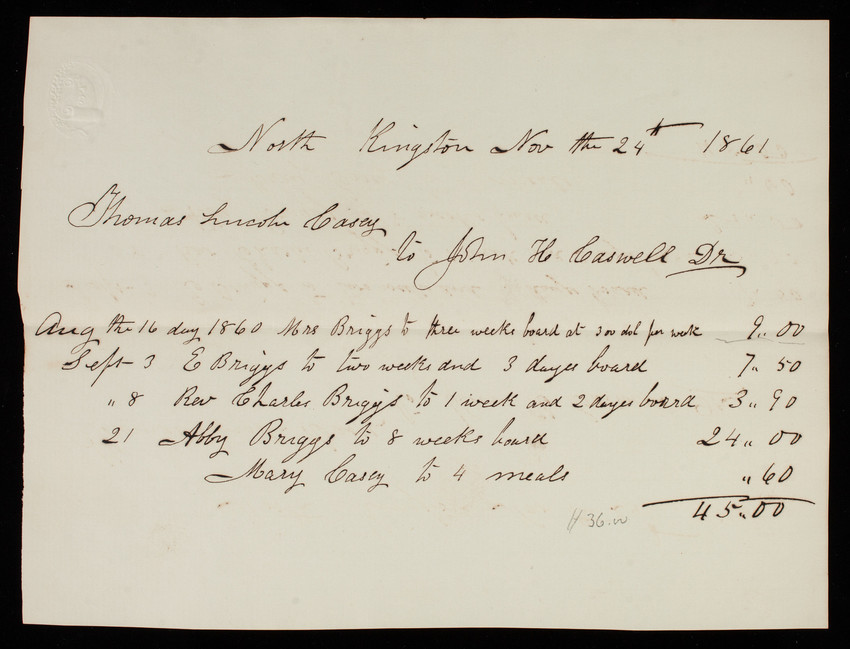 North Kingston Nov the 24th 1861
Thomas Lincoln Casey
to John H Caswell Dr
Aug the 16 day 1860 Mrs Briggs to three weeks board at 3 00 dol per week 9,, 00
Sept 3 E Briggs to two weeks and 3 dayes board 7,, 50
,, 8 Rev Charles Briggs to 1 week and 2 dayes board 3,, 90
21 Abby Briggs to 8 weeks board 24,, 00
Mary Casey to 4 meals ,, 60
45,, 00
36.00